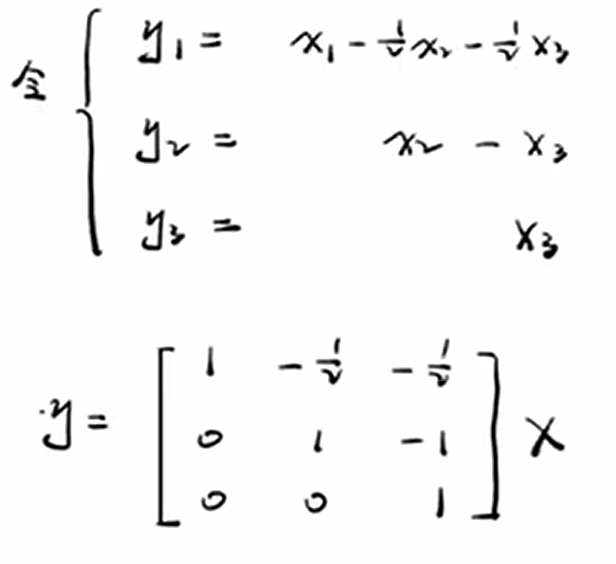 令 { y₁ = x₁ - ½x₂ - ½x₃
y₂ = x₂ - x₃
y₃ = x₃
y = [ 1 -½ -½
0 1 -1
0 0 1 ] X